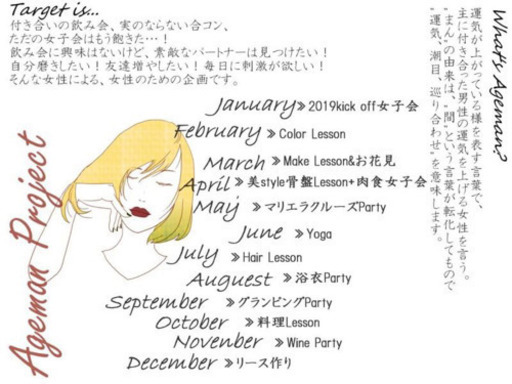 Target is...
付き合いの飲み会、実のならない合コン、
ただの女子会はもう飽きた…！
飲み会に興味はないけど、素敵なパートナーは見つけたい！
自分磨きしたい！友達増やしたい！毎日に刺激が欲しい！
そんな女性による、女性のための企画です。
What's Ageman?
運気が上がっている様を表す言葉で、
主に付き合った男性の運気を上げる女性を言う。
"まん"の由来は、"間"という言葉が転化してもので
"運気、潮目、巡り合わせ"を意味します。
Ageman Project
January》2019kick off女子会
February》Color Lesson
March》Make Lesson&お花見
April》美style骨盤Lesson+肉食女子会
May》マリエラクルーズParty
June》Yoga
July》Hair Lesson
Auguest》浴衣Party
September》グランピングParty
October》料理Lesson
Novenber》Wine Party
December》リース作り